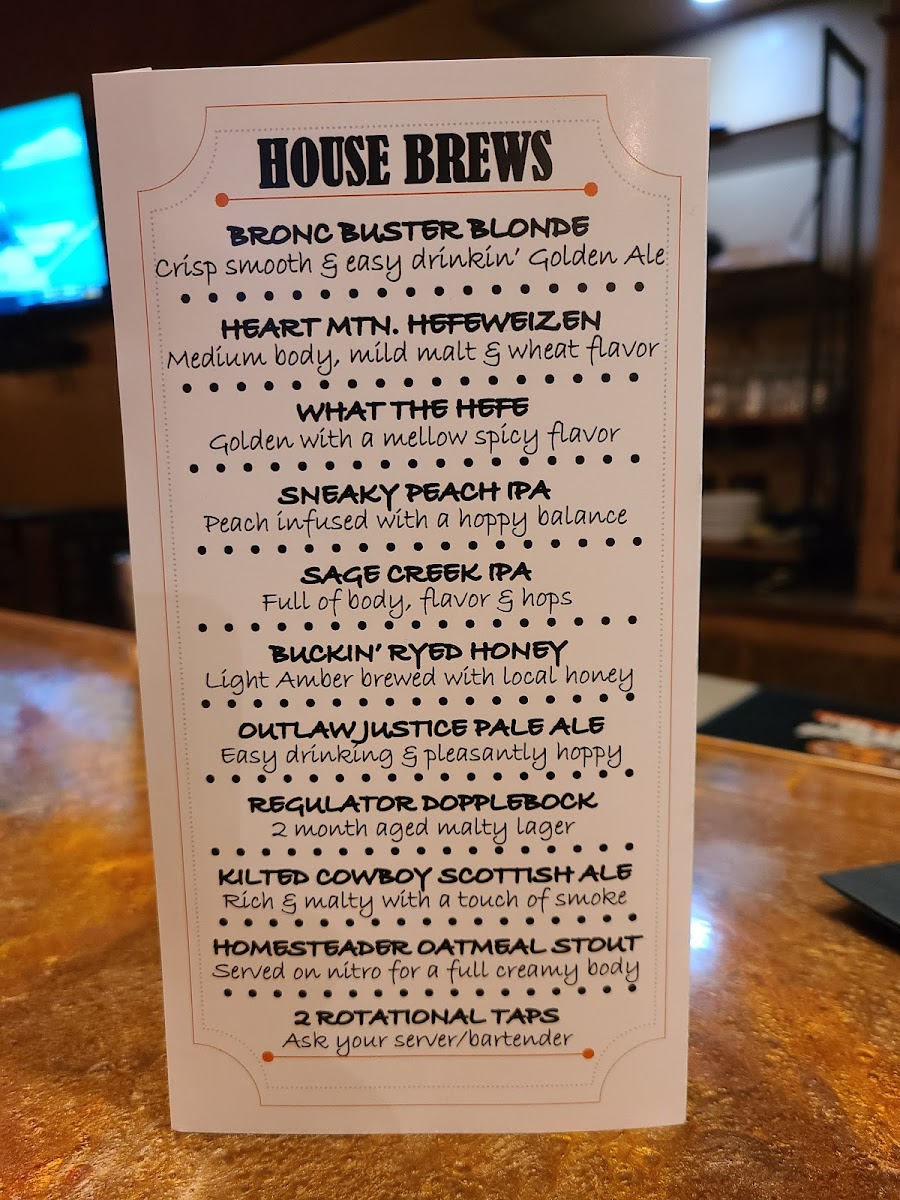 HOUSE BREWS
BRONC BUSTER BLONDE
Crisp smooth & easy drinkin' Golden Ale
HEART MTN. HEFEWEIZEN
Medium body, mild malt & wheat flavor
WHAT THE HEFE
Golden with a mellow spicy flavor
SNEAKY PEACH IPA
Peach infused with a hoppy balance
SAGE CREEK IPA
Full of body, flavor & hops
BUCKIN' RYED HONEY
Light Amber brewed with local honey
OUTLAW JUSTICE PALE ALE
Easy drinking & pleasantly hoppy
REGULATOR DOPPLEBOCK
2 month aged malty lager
KILTED COWBOY SCOTTISH ALE
Rich & malty with a touch of smoke
HOMESTEADER OATMEAL STOUT
Served on nitro for a full creamy body
2 ROTATIONAL TAPS
Ask your server/bartender